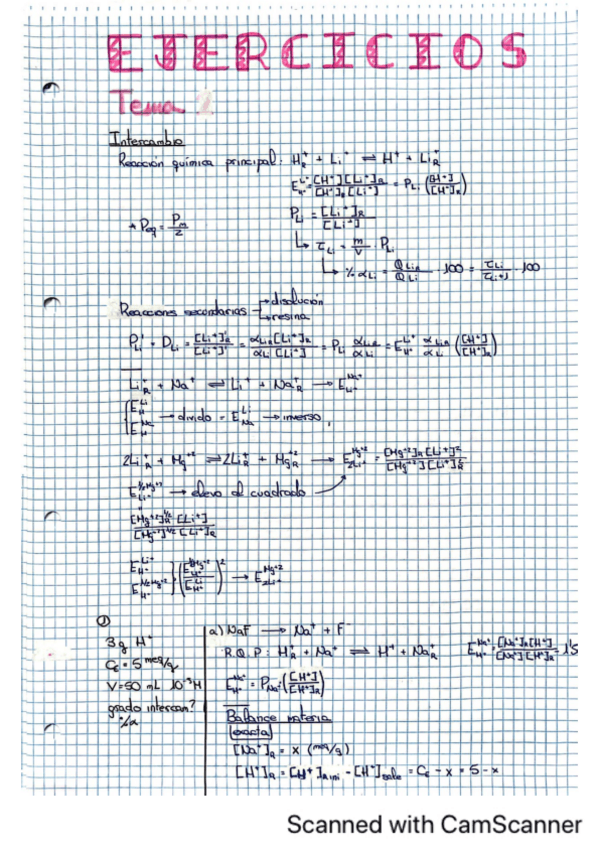 EJERCICIOS
Tema
Intercambio
Reacción química principal: H⁺_R + Li⁺ ⇌ H⁺ + Li⁺_R
E^{Li⁺}_{H⁺} = [H⁺][Li⁺]_R / [H⁺]_R [Li⁺] = P_{Li} · ([H⁺] / [H⁺]_R)
* P_eq = P_m / z
P_{Li} = [Li⁺]_R / [Li⁺]
↳ τ_{Li} = m/V · P_{Li}
↳ % α_{Li} = Q_{Li_R} / Q_{Li} · 100 = τ_{Li} / τ_{Li}+1 · 100
Reacciones secundarias → disolución
→ resina
P'_{Li} = D_{Li} = [Li⁺]'_R / [Li⁺]' = α_{LiR} [Li⁺]_R / α_{Li} [Li⁺] = P_{Li} α_{LiR} / α_{Li} = E^{Li⁺}_{H⁺} α_{LiR} / α_{Li} ([H⁺] / [H⁺]_R)
Li⁺_R + Na⁺ ⇌ Li⁺ + Na⁺_R → E^{Na⁺}_{Li⁺}
{ E^{Li}_{H} E^{Na}_{H} → divido = E^{Li}_{Na} → inverso
2Li⁺_R + Mg⁺² ⇌ 2Li⁺ + Mg⁺²_R → E^{Mg⁺²}_{2Li⁺} = [Mg⁺²]_R [Li⁺]² / [Mg⁺²][Li⁺]²_R
E^{½Mg⁺²}_{Li⁺} → elevo al cuadrado
[Mg⁺²]_R^{½} [Li⁺] / [Mg⁺²]^{½} [Li⁺]_R
E^{Li⁺}_{H⁺} E^{½Mg⁺²}_{H⁺} } (E^{½Mg⁺²}_{H⁺} / E^{Li⁺}_{H⁺})² → E^{Mg⁺²}_{2Li⁺}
①
3g H⁺
C_E = 5 meq/g
V = 50 mL 10⁻³ M
grado intercam?
%α
a) NaF → Na⁺ + F⁻
R.Q.P: H⁺_R + Na⁺ ⇌ H⁺ + Na⁺_R E^{Na⁺}_{H⁺} = [Na⁺]_R [H⁺] / [Na⁺][H⁺]_R = 1'5
E^{Na⁺}_{H⁺} = P_{Na} · ([H⁺] / [H⁺]_R)
Balance materia
exacta
[Na⁺]_R = x (meq/g)
[H⁺]_R = [H⁺]_{R ini} - [H⁺]_{sale} = C_E - x = 5 - x
Scanned with CamScanner